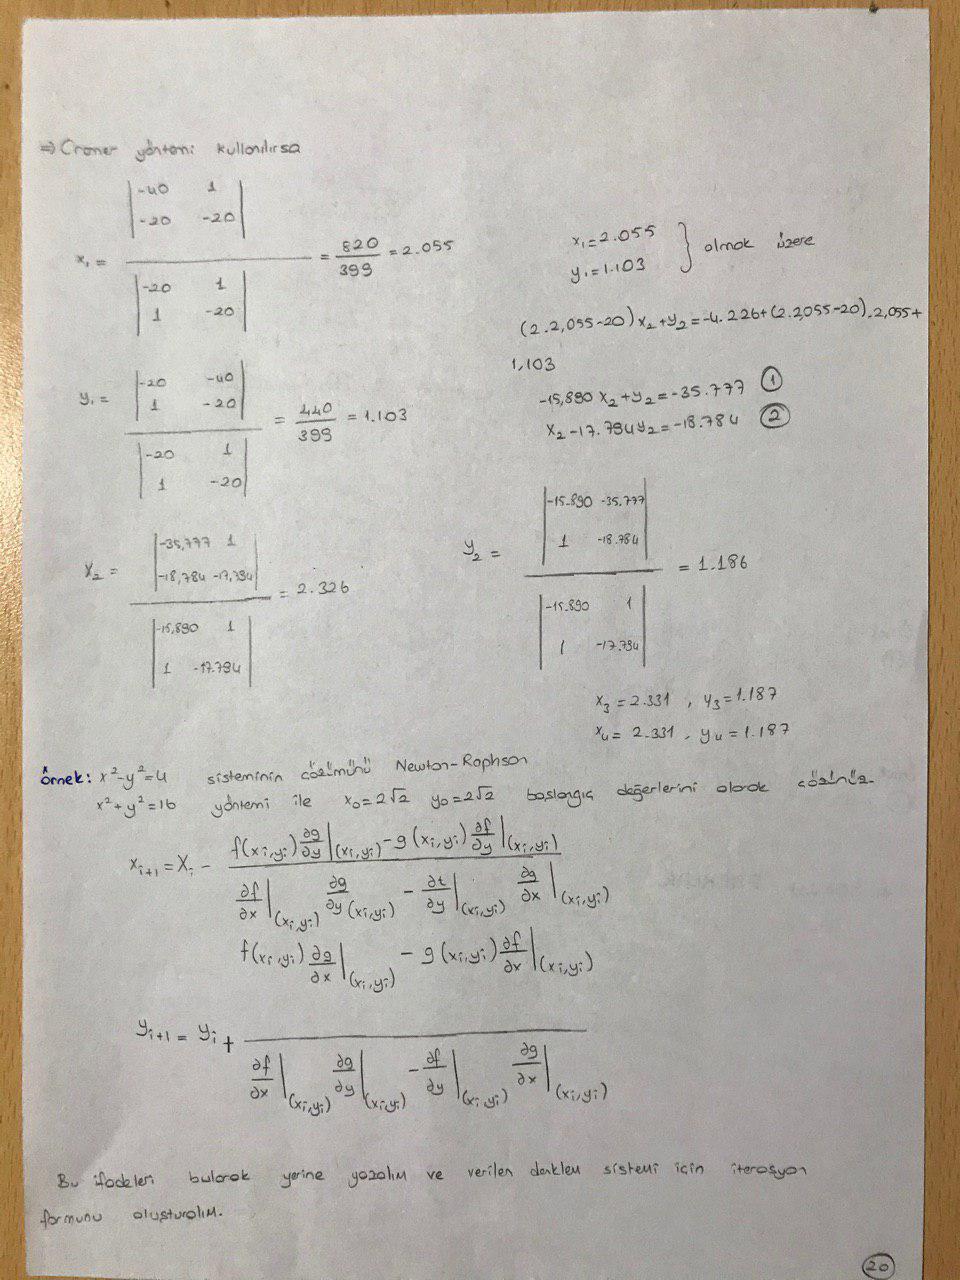 ⇒ Cramer yöntemi kullanılırsa
x₁ = |-40 1; -20 -20| / |-20 1; 1 -20| = 820/399 = 2.055
x₁=2.055
y₁=1.103 } olmak üzere
(2.2,055-20)x₂+y₂=-4.226+(2.2,055-20).2,055+
1,103
y₁ = |-20 -40; 1 -20| / |-20 1; 1 -20| = 440/399 = 1.103
-15,890 x₂+y₂=-35.777 ①
x₂-17.794y₂=-18.784 ②
x₂ = |-35,777 1; -18,784 -17,794| / |-15,890 1; 1 -17.794| = 2.326
y₂ = |-15.890 -35.777; 1 -18.784| / |-15.890 1; 1 -17.794| = 1.186
x₃ = 2.331 , y₃=1.187
x₄ = 2.331 , y₄=1.187
Örnek: x²-y²=4 sisteminin çözümünü Newton-Raphson
x²+y²=16 yöntemi ile x₀=2√2 y₀=2√2 başlangıç değerlerini olarak çözünüz.
xᵢ₊₁ = xᵢ - (f(xᵢ,yᵢ) ∂g/∂y|(xᵢ,yᵢ) - g(xᵢ,yᵢ) ∂f/∂y|(xᵢ,yᵢ)) / (∂f/∂x|(xᵢ,yᵢ) ∂g/∂y(xᵢ,yᵢ) - ∂f/∂y|(xᵢ,yᵢ) ∂g/∂x|(xᵢ,yᵢ))
yᵢ₊₁ = yᵢ + (f(xᵢ,yᵢ) ∂g/∂x|(xᵢ,yᵢ) - g(xᵢ,yᵢ) ∂f/∂x|(xᵢ,yᵢ)) / (∂f/∂x|(xᵢ,yᵢ) ∂g/∂y|(xᵢ,yᵢ) - ∂f/∂y|(xᵢ,yᵢ) ∂g/∂x|(xᵢ,yᵢ))
Bu ifadeleri bularak yerine yazalım ve verilen denklem sistemi için iterasyon
formunu oluşturalım.
20